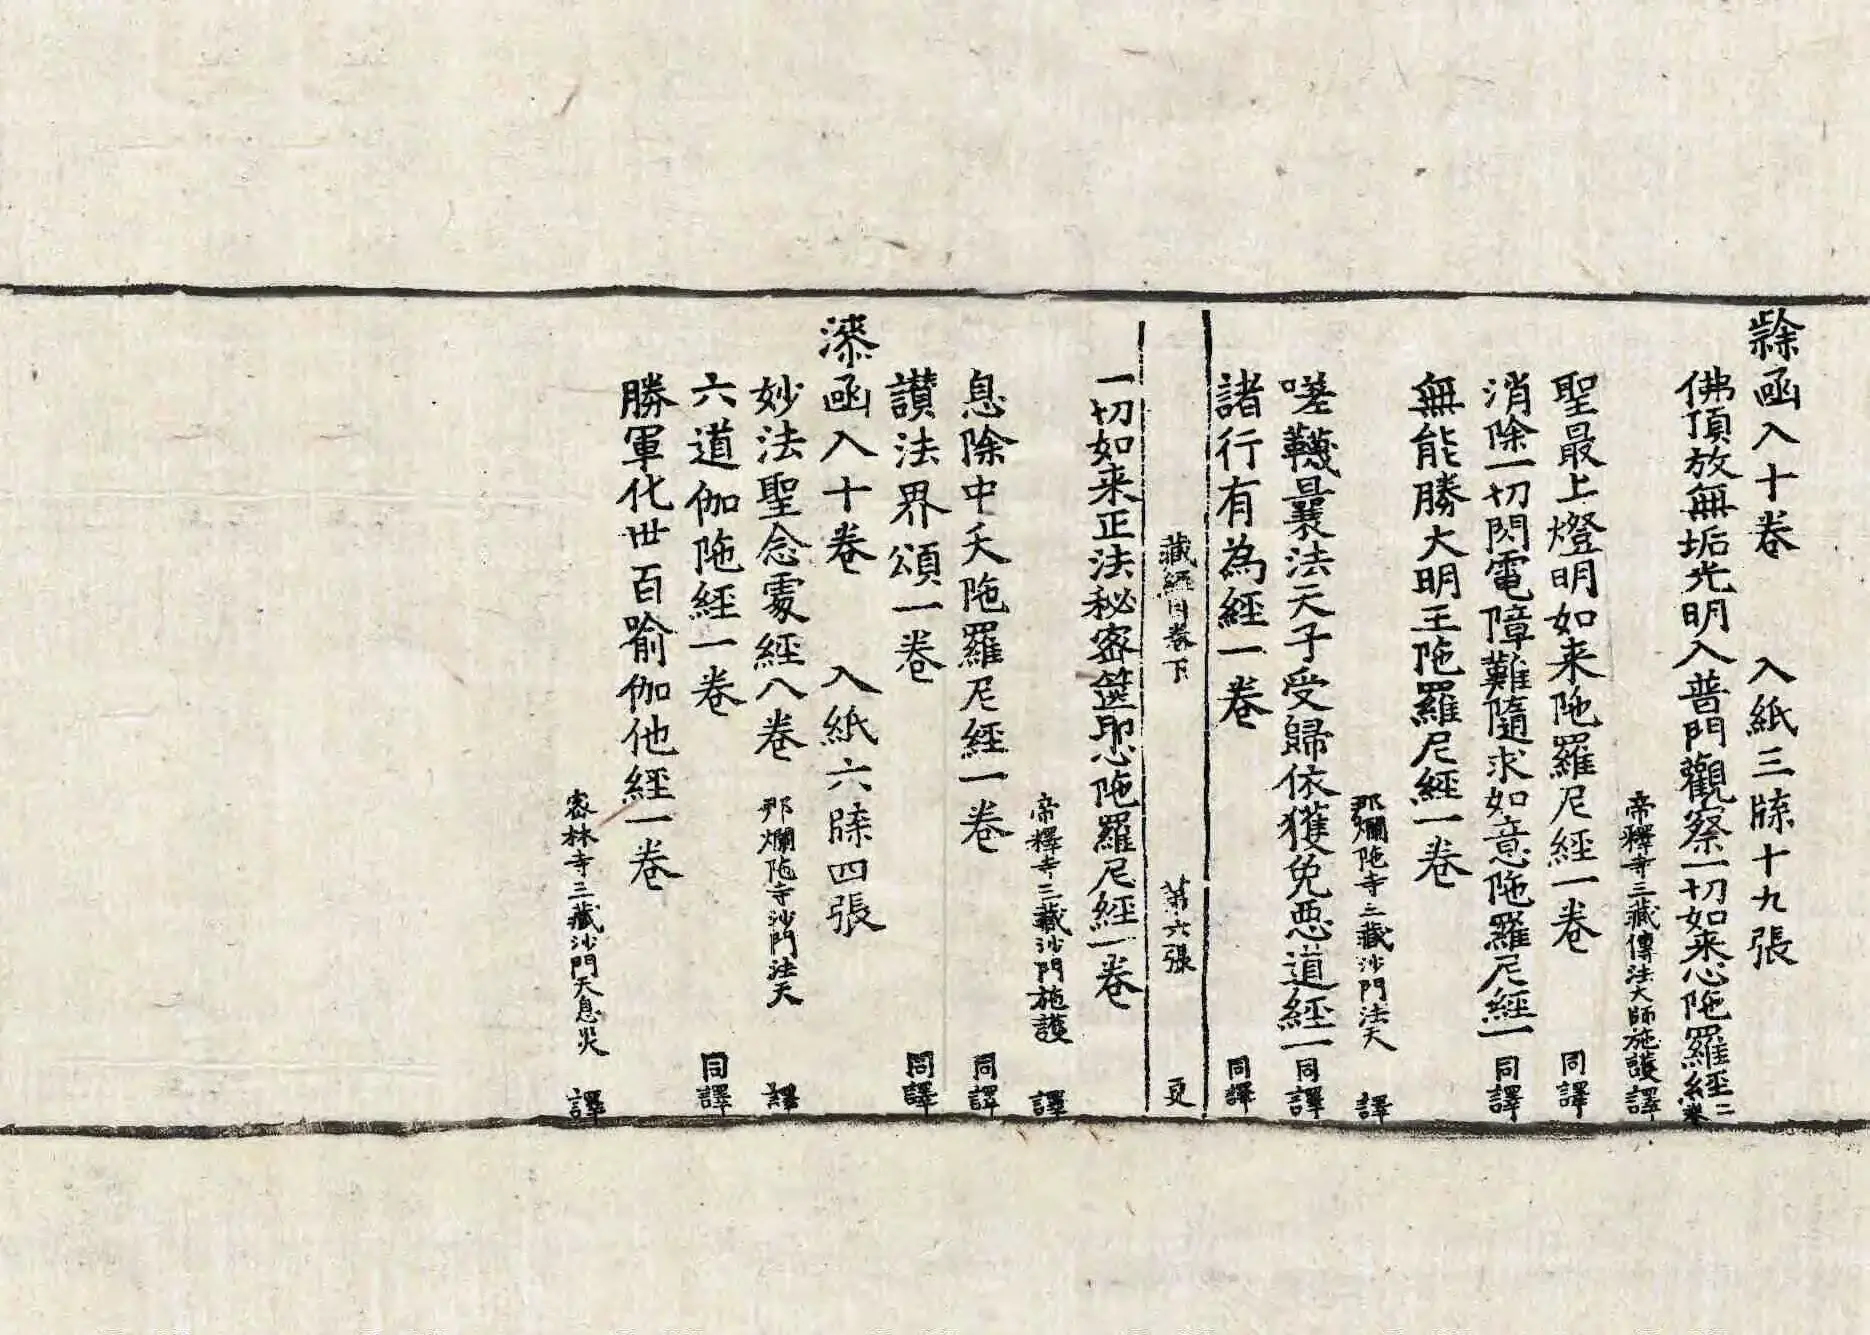 函入十卷 入紙三牒十九張
佛頂放無垢光明入普門觀察一切如来心陁羅經二卷
帝釋寺三藏傳法大師施護譯
聖最上燈明如来陁羅尼經一卷 同譯
消除一切閃電障難隨求如意陁羅尼經一 同譯
無能勝大明王陁羅尼經一卷
那爛陁寺三藏沙門法天 譯
嗟韈曩法天子受歸依獲免惡道經一 同譯
諸行有為經一卷 同譯
藏經目卷下 第六張 更
一切如来正法秘密篋印心陁羅尼經一卷
帝釋寺三藏沙門施護 譯
息除中夭陁羅尼經一卷 同譯
讃法界頌一卷 同譯
漆函入十卷 入紙六牒四張
妙法聖念處經八卷 那爛陁寺沙門法天 譯
六道伽陁經一卷 同譯
勝軍化世百喻伽他經一卷
密林寺三藏沙門天息灾 譯